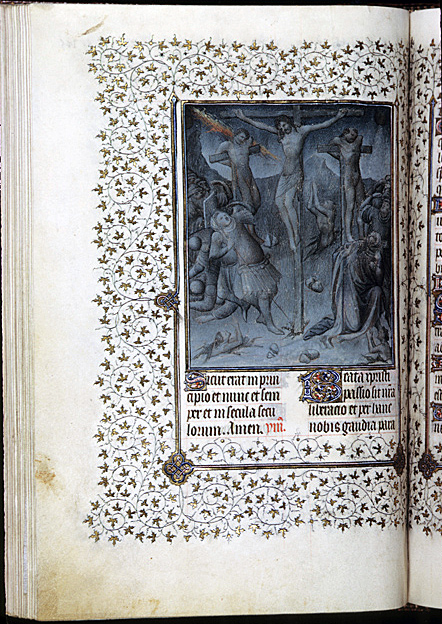 Sicut erat in prin
cipio et nunc et sem
per et in secula secu
lorum. Amen. ym̄.
Beata xp̄isti
passio sit nr̄a
liberacio et per hanc
nobis gaudia para